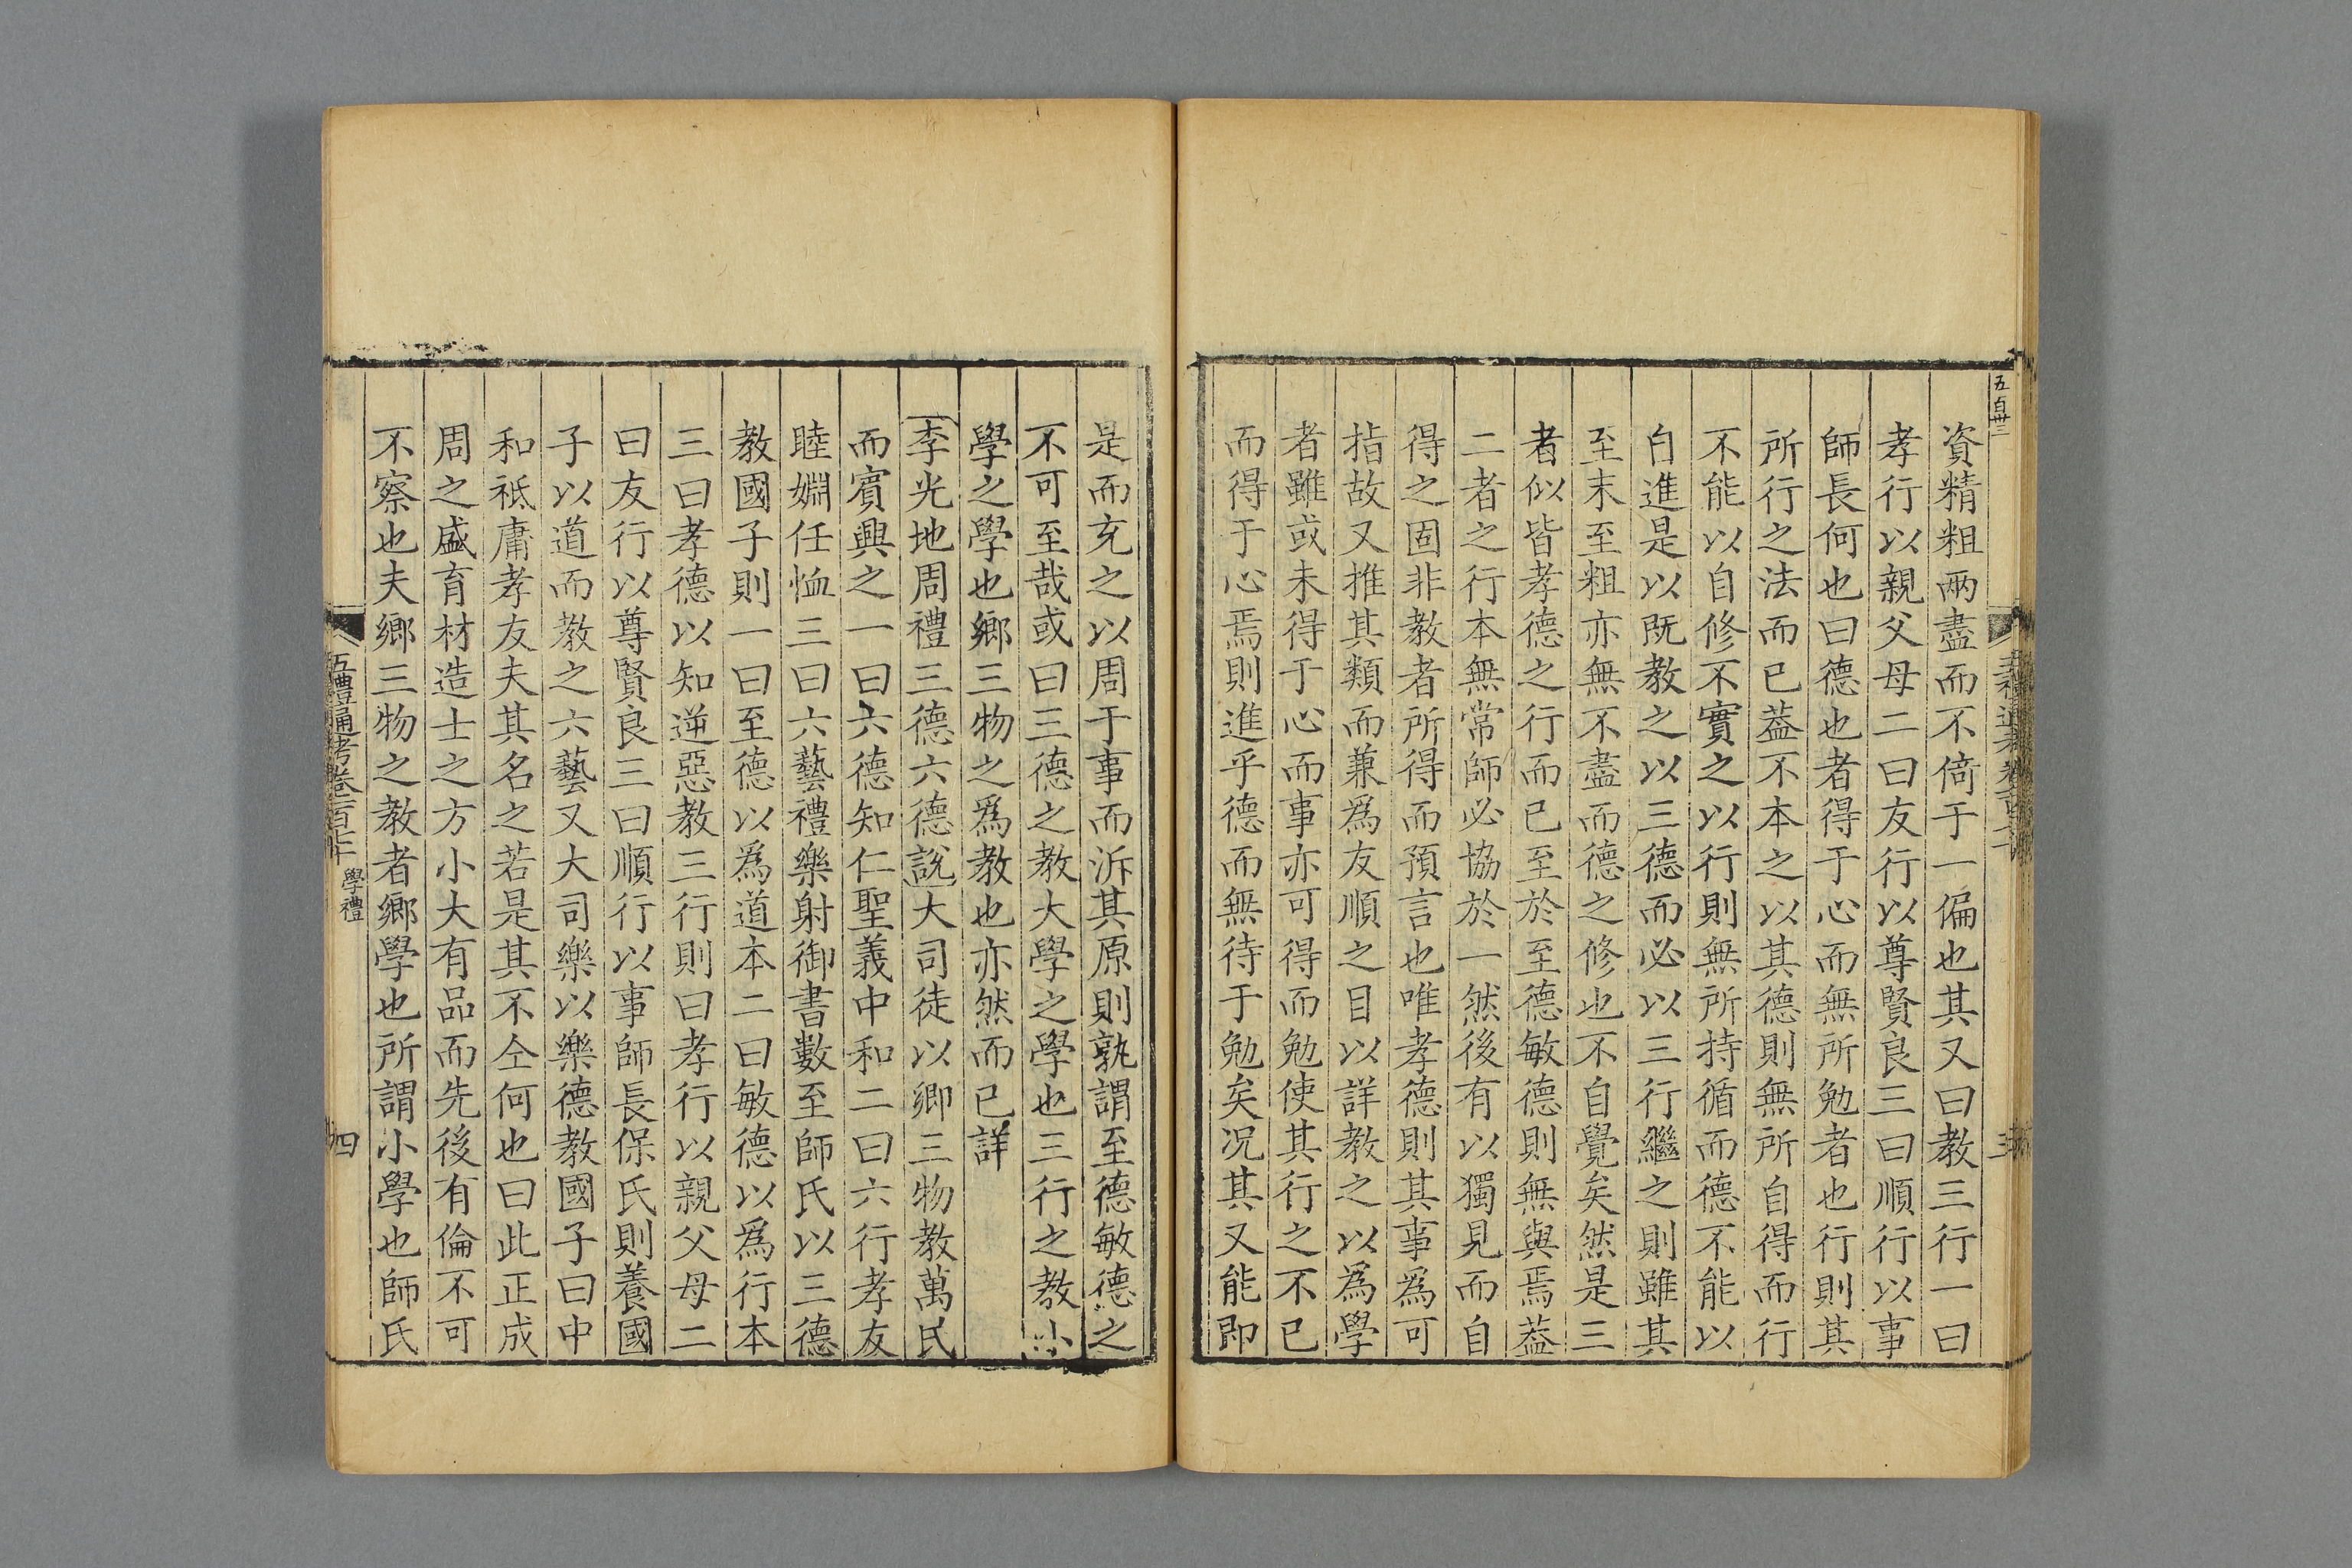 五百卅三
資精粗兩盡而不倚于一偏也其又曰教三行一曰
孝行以親父母二曰友行以尊賢良三曰順行以事
師長何也曰德也者得于心而無所勉者也行則其
所行之法而已葢不本之以其德則無所自得而行
不能以自修不實之以行則無所持循而德不能以
自進是以既教之以三德而必以三行繼之則雖其
至末至粗亦無不盡而德之修也不自覺矣然是三
者似皆孝德之行而已至於至德敏德則無與焉葢
二者之行本無常師必協於一然後有以獨見而自
得之固非教者所得而預言也唯孝德則其事為可
指故又推其類而兼為友順之目以詳教之以為學
者雖或未得于心而事亦可得而勉使其行之不已
而得于心焉則進乎德而無待于勉矣况其又能即
是而充之以周于事而泝其原則孰謂至德敏德之
不可至哉或曰三德之教大學之學也三行之教小
學之學也鄉三物之為教也亦然而已詳
李光地周禮三德六德說大司徒以鄉三物教萬民
而賓興之一曰六德知仁聖義中和二曰六行孝友
睦婣任恤三曰六藝禮樂射御書數至師氏以三德
教國子則一曰至德以為道本二曰敏德以為行本
三曰孝德以知逆惡教三行則曰孝行以親父母二
曰友行以尊賢良三曰順行以事師長保氏則養國
子以道而教之六藝又大司樂以樂德教國子曰中
和祗庸孝友夫其名之若是其不仝何也曰此正成
周之盛育材造士之方小大有品而先後有倫不可
不察也夫鄉三物之教者鄉學也所謂小學也師氏
五禮通考卷一百七十 學禮
四